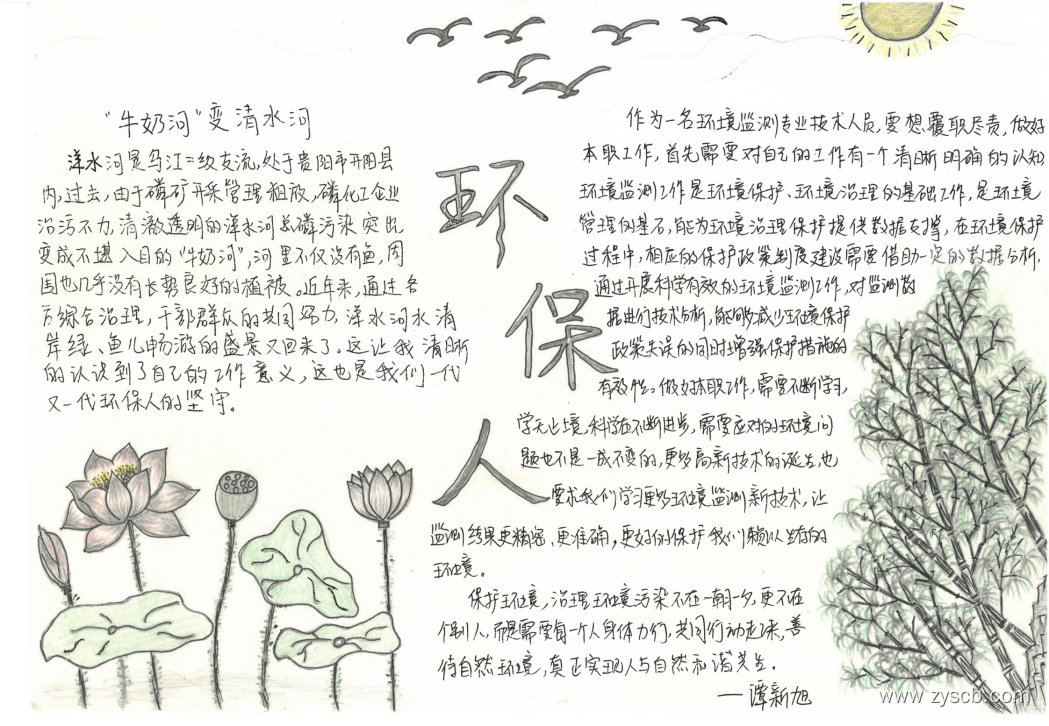 "牛奶河"变清水河
洋水河是乌江二级支流,处于贵阳市开阳县
内,过去,由于磷矿开采管理粗放,磷化工企业
治污不力,清澈透明的洋水河总磷污染突出
变成不堪入目的"牛奶河",河里不仅没有鱼,周
围也几乎没有长势良好的植被。近年来,通过各
方综合治理,干部群众的共同努力,洋水河水清
岸绿、鱼儿畅游的盛景又回来了。这让我清晰
的认识到了自己的工作意义,这也是我们一代
又一代环保人的坚守。
环
保
人
作为一名环境监测专业技术人员,要想履职尽责,做好
本职工作,首先需要对自己的工作有一个清晰明确的认知
环境监测工作是环境保护、环境治理的基础工作,是环境
管理的基石,能为环境治理保护提供数据支撑,在环境保护
过程中,相应的保护政策制度建设需要借助一定的数据分析,
通过开展科学有效的环境监测工作,对监测数
据进行技术分析,能够减少环境保护
政策失误的同时增强保护措施的
有效性。做好本职工作,需要不断学习,
学无止境,科学在不断进步,需要应对的环境问
题也不是一成不变的,更多高新技术的诞生,也
要求我们学习更多环境监测新技术,让
监测结果更精密、更准确,更好的保护我们赖以生存的
环境。
保护环境,治理环境污染不在一朝一夕,更不在
个别人,而是需要每一个人身体力行,共同行动起来,善
待自然环境,真正实现人与自然和谐共生。
—谭新旭
www.zyscb.com